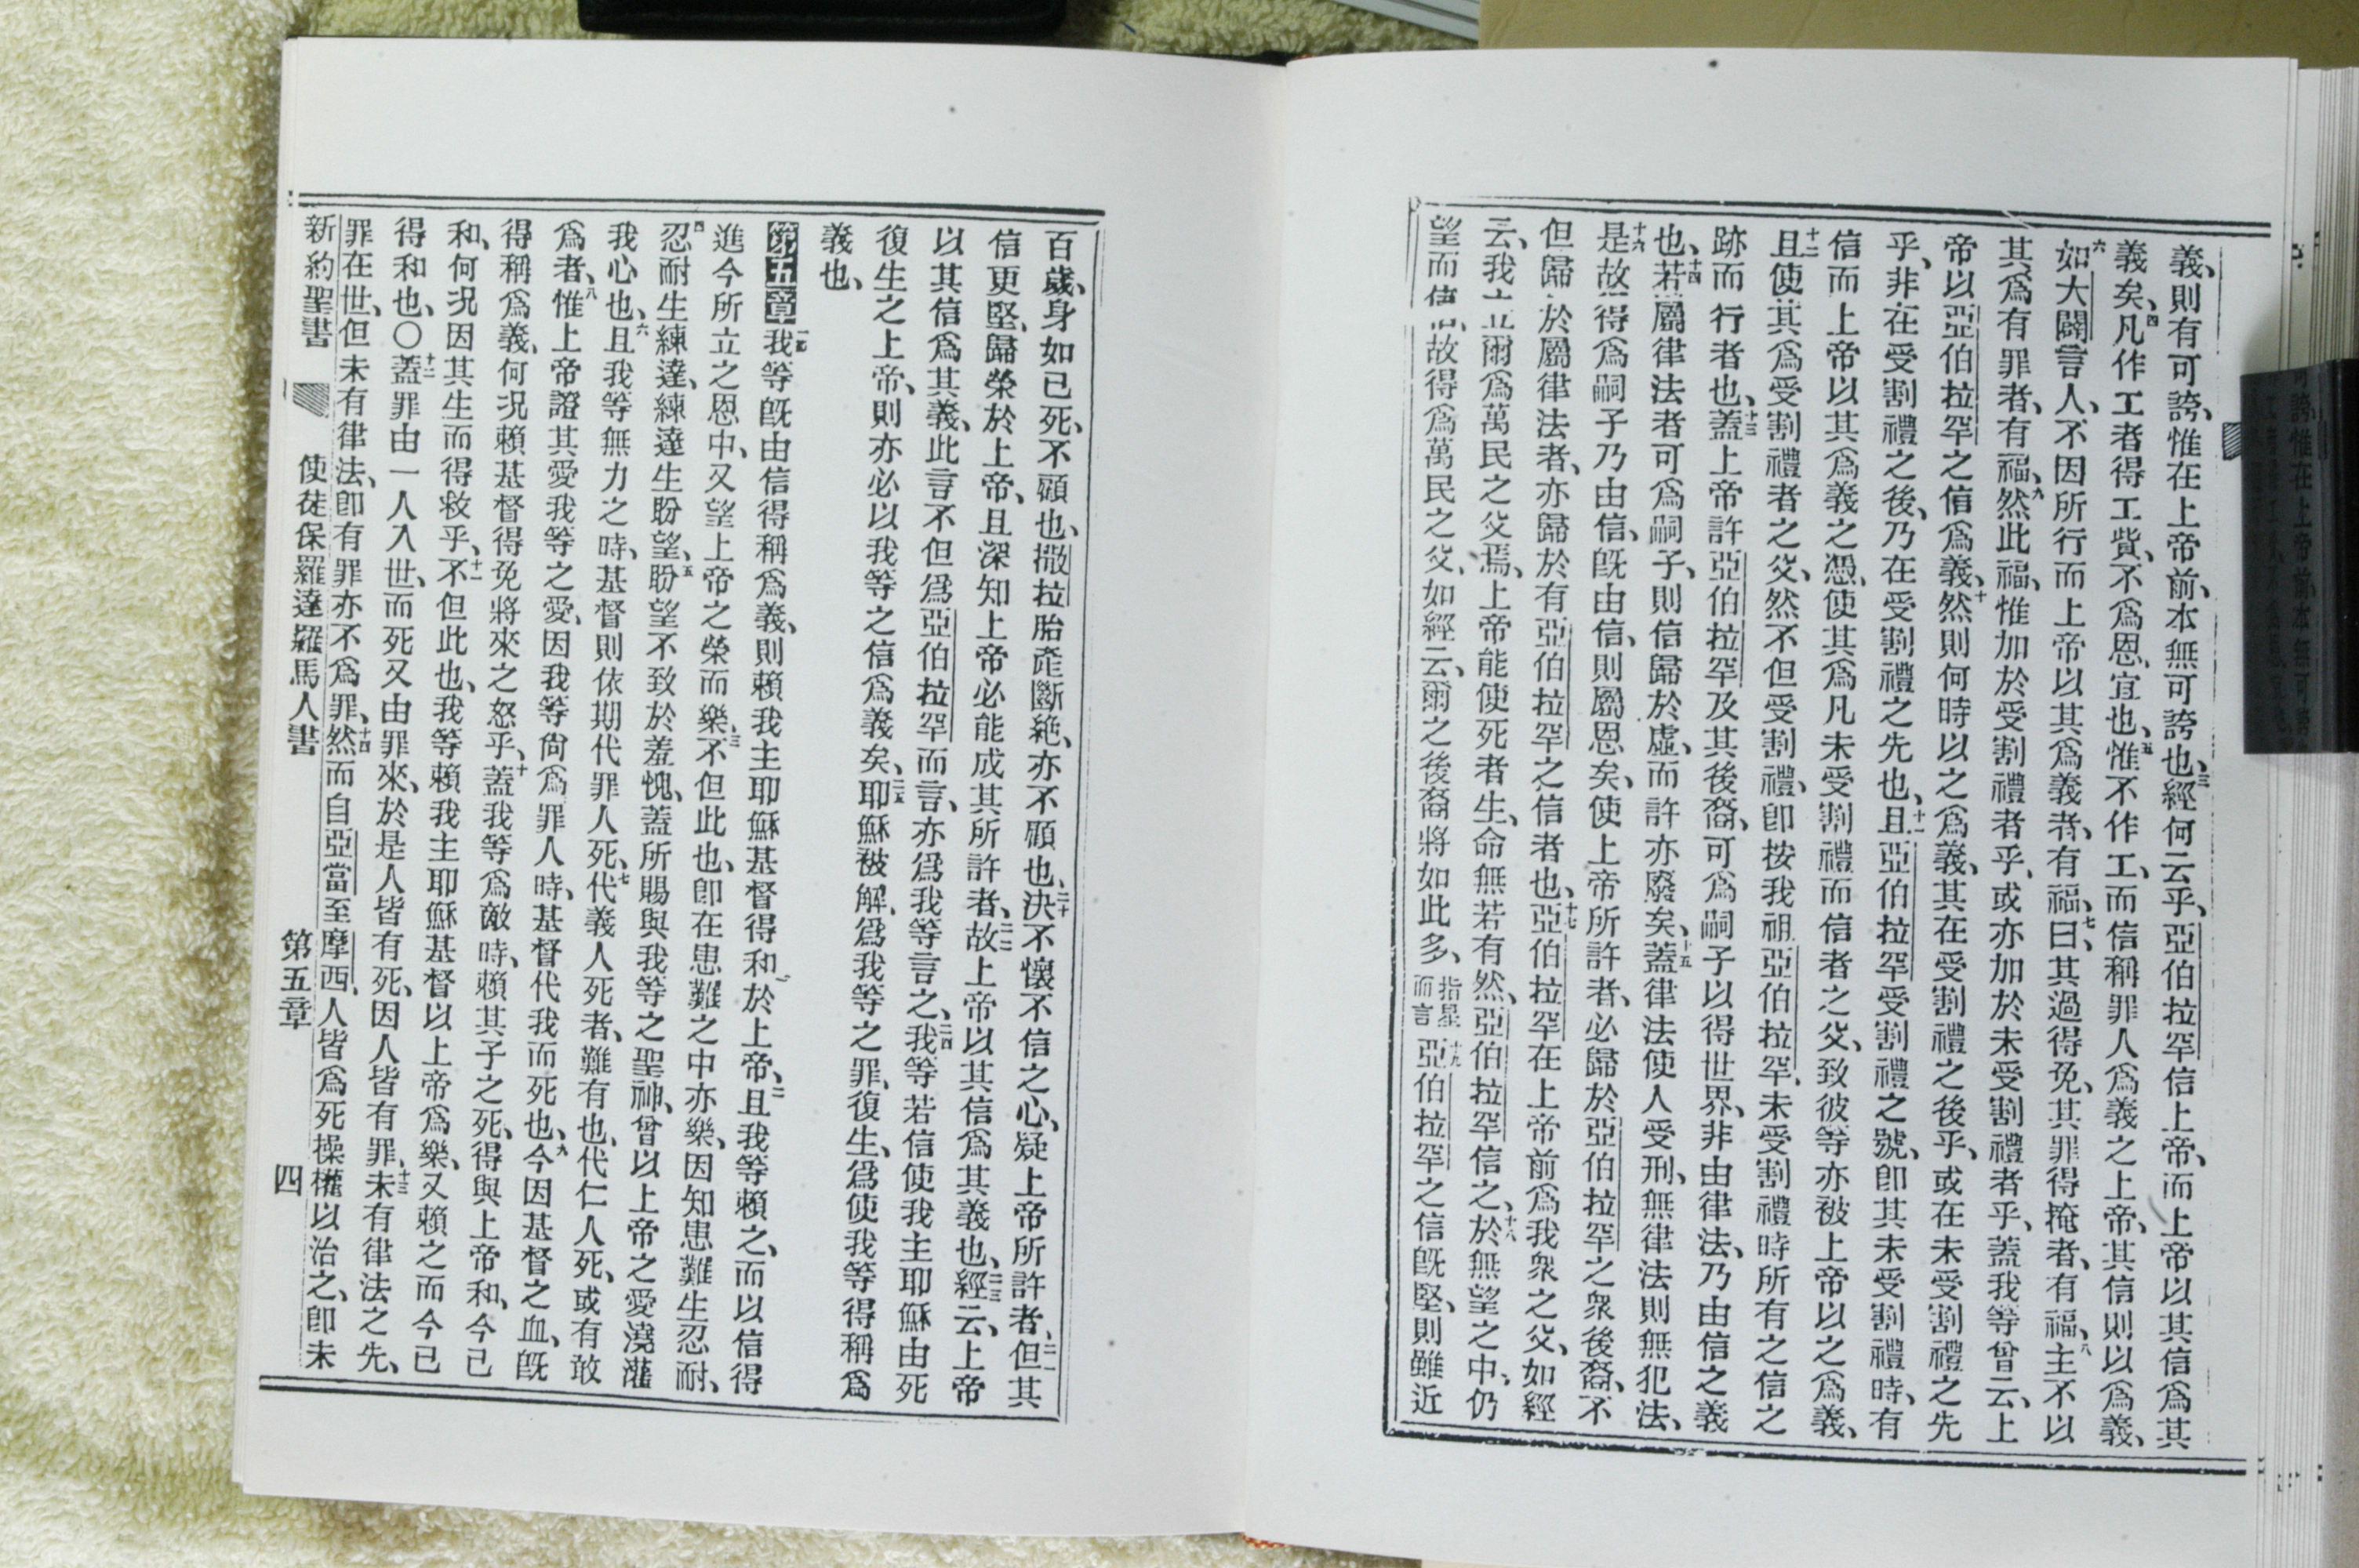 義、則有可誇、惟在上帝前、本無可誇也、三經何云乎、亞伯拉罕信上帝、而上帝以其信爲其
義矣、四凡作工者得工貲、不爲恩、宜也、五惟不作工、而信稱罪人爲義之上帝、其信則以爲義、
六如大闢言人、不因所行而上帝以其爲義者、有福、七曰、其過得免、其罪得掩者、有福、八主不以
其爲有罪者、有福、九然此福、惟加於受割禮者乎、或亦加於未受割禮者乎、蓋我等曾云、上
帝以亞伯拉罕之信爲義、十然則何時以之爲義、其在受割禮之後乎、或在未受割禮之先
乎、非在受割禮之後、乃在受割禮之先也、十一且亞伯拉罕受割禮之號、卽其未受割禮時、有
信而上帝以其爲義之憑、使其爲凡未受割禮而信者之父、致彼等亦被上帝以之爲義、
十二且使其爲受割禮者之父、然不但受割禮、卽按我祖亞伯拉罕、未受割禮時所有之信之
跡而行者也、十三蓋上帝許亞伯拉罕及其後裔、可爲嗣子以得世界、非由律法、乃由信之義
也、十四若屬律法者可爲嗣子、則信歸於虛、而許亦廢矣、十五蓋律法使人受刑、無律法則無犯法、
十六是故得爲嗣子乃由信、旣由信、則屬恩矣、使上帝所許者、必歸於亞伯拉罕之衆後裔、不
但歸於屬律法者、亦歸於有亞伯拉罕之信者也、十七亞伯拉罕在上帝前爲我衆之父、如經
云、我立爾爲萬民之父焉、上帝能使死者生、命無若有然、亞伯拉罕信之、十八於無望之中、仍
望而信、故得爲萬民之父、如經云、爾之後裔將如此多、指星而言十九亞伯拉罕之信旣堅、則雖近
百歲、身如已死、不顧也、撒拉胎產斷絶、亦不顧也、二十決不懷不信之心、疑上帝所許者、二一但其
信更堅、歸榮於上帝、且深知上帝必能成其所許者、二二故上帝以其信爲其義也、二三經云、上帝
以其信爲其義、此言不但爲亞伯拉罕而言、亦爲我等言之、二四我等若信使我主耶穌由死
復生之上帝、則亦必以我等之信爲義矣、二五耶穌被解、爲我等之罪、復生、爲使我等得稱爲
義也、
第五章一節我等旣由信得稱爲義、則賴我主耶穌基督得和於上帝、二且我等賴之、而以信得
進今所立之恩中、又望上帝之榮而樂、三不但此也、卽在患難之中亦樂、因知患難生忍耐、
四忍耐生練達、練達生盼望、五盼望不致於羞愧、蓋所賜與我等之聖神、曾以上帝之愛澆灌
我心也、六且我等無力之時、基督則依期代罪人死、七代義人死者、難有也、代仁人死、或有敢
爲者、八惟上帝證其愛我等之愛、因我等尙爲罪人時、基督代我而死也、九今因基督之血、旣
得稱爲義、何况賴基督得免將來之怒乎、十蓋我等爲敵時、賴其子之死、得與上帝和、今己
和、何况因其生而得救乎、十一不但此也、我等賴我主耶穌基督以上帝爲樂、又賴之而今己
得和也、〇十二蓋罪由一人入世、而死又由罪來、於是人皆有死、因人皆有罪、十三未有律法之先、
罪在世、但未有律法、卽有罪亦不爲罪、十四然而自亞當至摩西、人皆爲死操權以治之、卽未
新約聖書 使徒保羅達羅馬人書 第五章 四